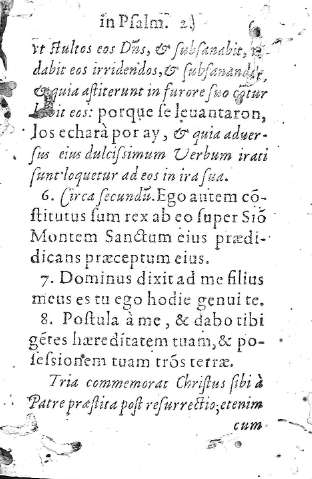 in Psalm. 2.
vt stultos eos Dñs, & subsanabit,
dabit eos irridendos, & subsanandos,
& quia astiterunt in furore suo cōtur
babit eos: porque se leuantaron,
los echarà por ay, & quia aduer-
sus eius dulcissimum Verbum irati
sunt loquetur ad eos in ira sua.
6. Circa secundũ. Ego autem cō-
stitutus sum rex ab eo super Siō
Montem Sanctum eius prædi-
dicans præceptum eius.
7. Dominus dixit ad me filius
meus es tu ego hodie genui te.
8. Postula à me, & dabo tibi
gẽtes hæreditatem tuam, & po-
sessionem tuam trōs terræ.
Tria commemorat Christus sibi à
Patre præstita post resurrectio; etenim
cum